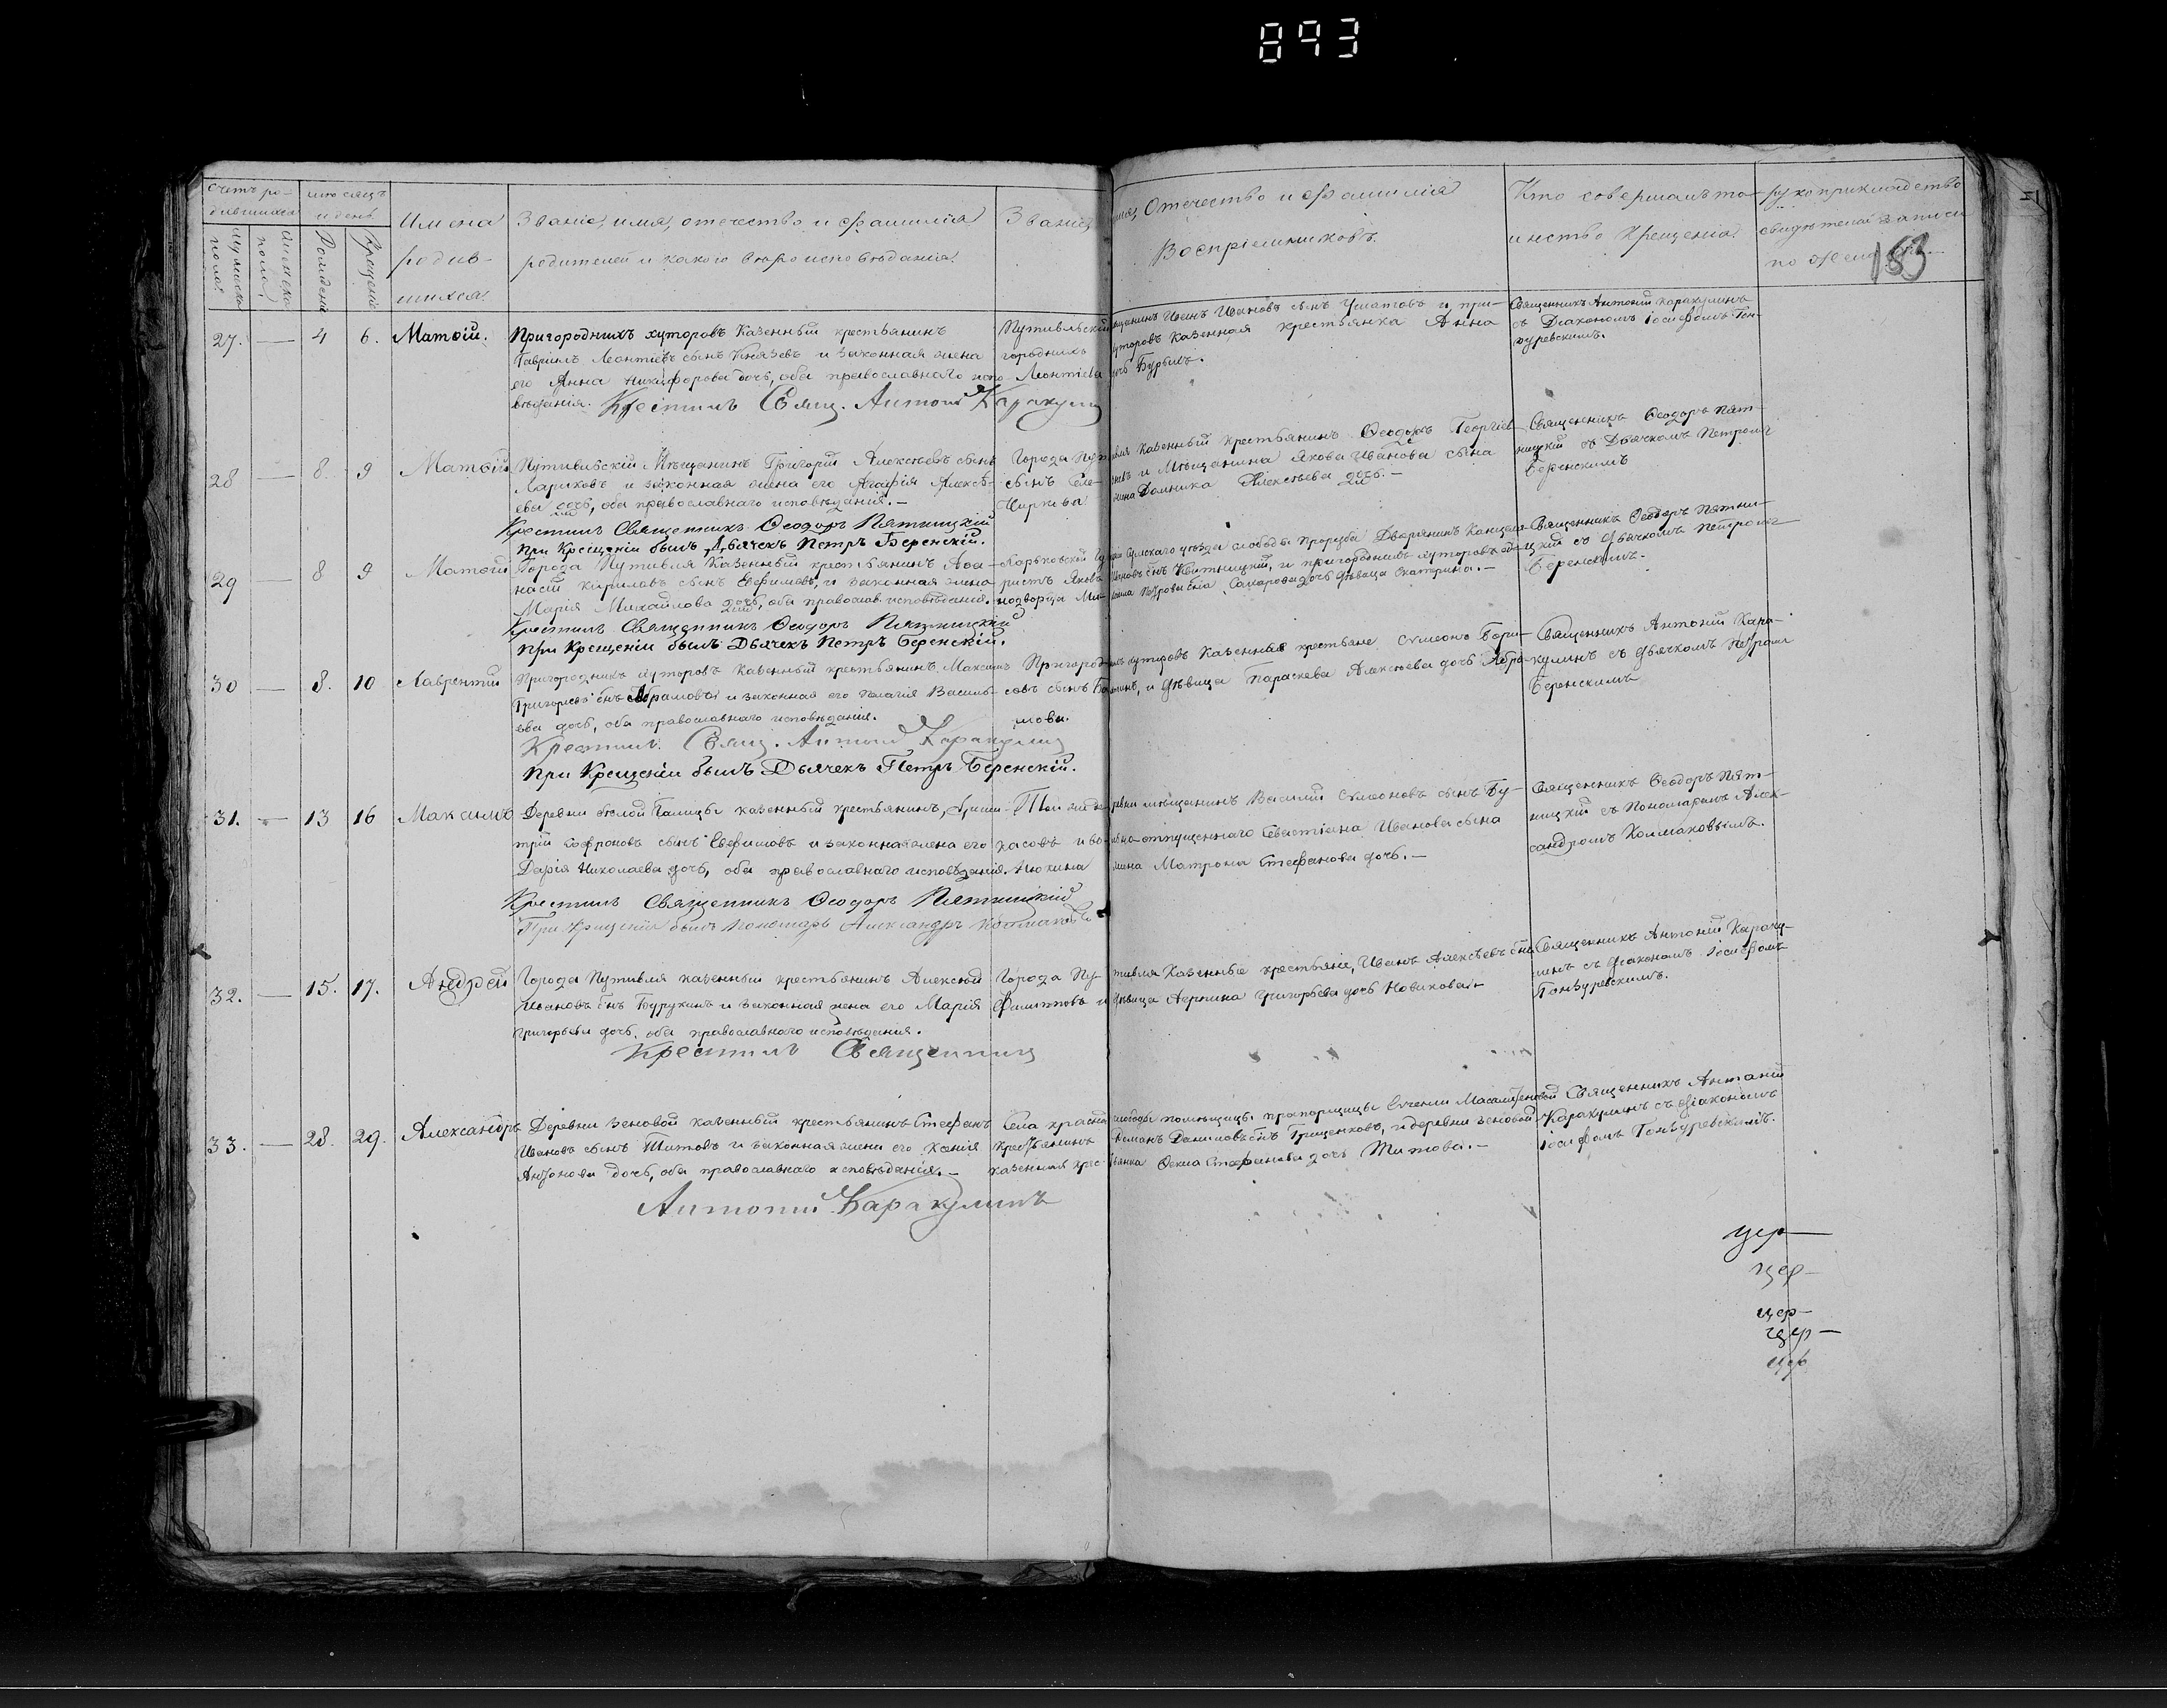 893
Счетъ ро-
дившихся
мужеска
пола
женска
пола
месяцъ
и день
Рожденія
Крещенія
Имена
родив-
шихся
Званіе, имя, отечество и фамилія
родителей и какого вероисповѣданія.
Званіе, имя, Отечество и фамилія
Воспріемниковъ.
Кто совершалъ та-
инство крещенія.
рукоприкладство
свидѣтелей записи
по желанію
153
27. — 4 6. Матѳій.
Пригородныхъ хуторовъ Казенный крестьянинъ
Гавріилъ Леонтіевъ сынъ Князевъ и законная жена
его Анна Никифорова дочь, оба православнаго испо-
вѣданія.
Крестилъ Свящ. Антоній Каракулинъ
Путивльскій мѣщанинъ Иванъ Ивановъ сынъ Ушатовъ и при-
городныхъ хуторовъ казенная крестьянка Анна
Леонтіева дочь
Священникъ Антоній Каракулинъ
съ Діакономъ Іосифомъ Гон-
чуревскимъ.
28 — 8. 9 Матѳій
Путивльскій Мѣщанинъ Григорій Алексѣевъ сынъ
Лариковъ и законная жена его Агафія Алексѣ-
ева дочь, оба православнаго исповѣданія. —
Крестилъ Священникъ Ѳеодоръ Пятницкій
При Крещеніи былъ Дьячекъ Петръ Беренскій.
Города Путивля казенный крестьянинъ Ѳеодоръ Георгіевъ
сынъ и Мѣщанина Якова Иванова сына
Чиркова жена Домника Алексѣева дочь. —
Священникъ Ѳеодоръ Пят-
ницкій съ Дьячкомъ Петромъ
Беренскимъ
29 — 8 9 Матѳій
Города Путивля Казенный крестьянинъ Аѳа-
насій Кириловъ сынъ Евфимовъ, и законная жена
Марія Михайлова дочь, оба православ. исповѣданія.
Крестилъ Священникъ Ѳеодоръ Пятницкій
При Крещеніи былъ Дьячекъ Петръ Беренскій.
Харьковской Губерніи Сумскаго уѣзда слободы Дворянинъ Канцеля-
ристъ Яковъ Ивановъ сынъ Квитницкій, и пригородныхъ хуторовъ од-
нодворца Михаила Петрова сына Сахарова дочь дѣвица Екатерина. —
Священникъ Ѳеодоръ Пятни-
цкій съ Дьячкомъ Петромъ
Беренскимъ. —
30 — 8. 10 Лаврентій
Пригородныхъ хуторовъ Казенный крестьянинъ Максимъ
Григорьевъ сынъ Абрамовъ и законная его Пелагія Василь-
ева дочь, оба православнаго исповѣданія.
Крестилъ Свящ. Антоній Каракулинъ
При Крещеніи былъ Дьячекъ Петръ Беренскій.
Пригородныхъ хуторовъ Казенные крестьяне Сумеонъ Бори-
совъ сынъ и дѣвица Параскева Алексѣева дочь Абра-
мова.
Священникъ Антоній Кара-
кулинъ съ дьячкомъ Петромъ
Беренскимъ
31. — 13 16 Максимъ
Деревни Бѣлой Галицы казенный крестьянинъ, Дими-
трій Софроновъ сынъ Евфимовъ и законная жена его
Дарія Николаева дочь, оба православнаго исповѣданія.
Крестилъ Священникъ Ѳеодоръ Пятницкій
При Крещеніи былъ Пономарь Александръ Колмаковъ
Той же деревни мѣщанинъ Василій Сумеоновъ сынъ Бу-
хасовъ и вольноотпущеннаго Севастіана Иванова сына
жена Матрона Стефанова дочь. —
Священникъ Ѳеодоръ Пят-
ницкій съ Пономаремъ Алек-
сандромъ Колмаковымъ.
32. — 15. 17. Андрей
Города Путивля казенный крестьянинъ Алексѣй
Ивановъ сынъ Бурукинъ и законная жена его Марія
Григорьева дочь, оба православнаго исповѣданія.
Крестилъ Священникъ
Города Путивля Казенные крестьяне, Иванъ Алексѣевъ сынъ
Филиповъ и дѣвица Григорьева дочь Новикова. —
Священникъ Антоній Караку-
линъ съ Діакономъ Іосифомъ
Гончуревскимъ.
33. — 28. 29. Александръ
Деревни Зеновой казенный крестьянинъ Стефанъ
Ивановъ сынъ Титовъ и законная жена его Ксенія
Антонова дочь, оба православнаго исповѣданія. —
Антоній Каракулинъ
Села красной слободы помѣщицы прапорщицы Евгеніи
крестьянинъ Романъ Даниловъ сынъ Грищенковъ, и деревни Зеновой
казенная крестьянка Стефанова дочь Титова. —
Священникъ Антоній
Каракулинъ съ Діакономъ
Іосифомъ Гончуревскимъ.